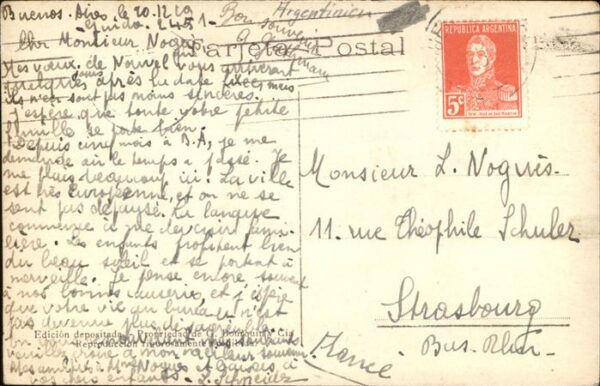 Buenos Aires, le 20.12.29
Guido 2451-
Bon souvenir
Argentinien
Cher Monsieur Noguès
Tarjeta Postal
Mes vœux de Nouvel vous arriveront
quelques jours après la date fixée, mais
ils n'en sont pas moins sincères.
J'espère que toute votre petite
famille se porte bien.
Depuis cinq mois à B.A, je me
demande où le temps a passé. Je
me plais beaucoup ici. La ville
est très européenne, et on ne se
sent pas dépaysé. La langue
commence à me devenir fami-
lière. Les enfants profitent bien
du beau soleil et se portent à
merveille. Je pense encore souvent
à nos bonnes causeries, et j'espère
que votre vie au bureau n'est
pas devenue plus désagréable.
Edición depositada - Propiedad de G. Bourquin y Cia
Reproducción rigurosamente
veuillez croire à mon meilleur souvenir
Mes amitiés à Mme Noguès et baisers à
vos chers enfants.
REPUBLICA ARGENTINA
5c
Monsieur L. Noguès.
11. rue Théophile Schuler
Strasbourg
Bas-Rhin
France